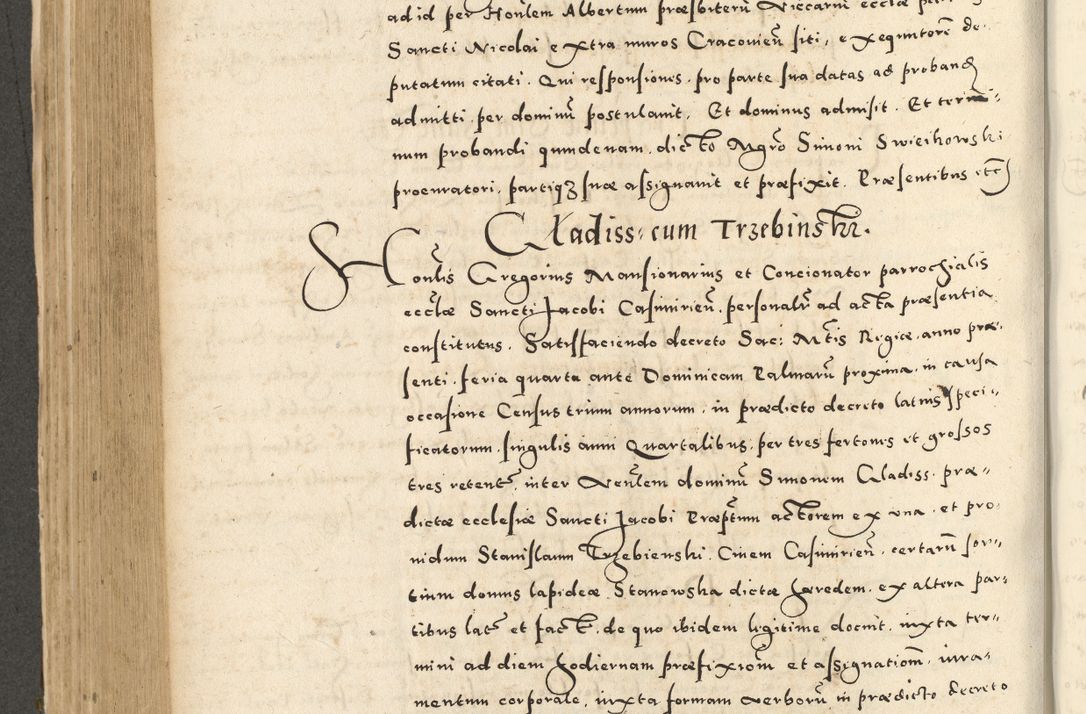 ad id per Honlem Albertum præsbiterũ Viccariũ eccłæ
Sancti Nicolai extra muros Cracovieñ siti, exequutorē de-
putatum citati. Qui responsiones. pro parte sua datas ad proband
admitti. per dominũ postulavit. Et dominus admisit. Et termi-
num probandi quindenam. dicto Mgro Simoni Swieihowski
procuratori. partiqꝫ suæ assignavit et præfixit. Præsentibus etc
Gładiss: cum Trzebinski.
Honlis Gregorius Mansionarius et Concionator parrochialis
eccłæ Sancti Jacobi Casimirieñ. personalr ad acta præsentia
constitutus. Satisfaciendo decreto Sac: Mtis Regiæ. anno præ-
senti. feria quarta ante Dominicam Palmarũ proxima. in causa
occasione Census trium annorum. in prædicto decreto latius speci-
ficatorum. singulis anni Quartalibus. per tres fertones et grossos
tres retent. inter Venlem dominũ Simonem Gladiss. præ-
dictæ ecclesiæ Sancti Jacobi Præptum actorem ex una. et pro-
vidum Stanislaum Trzebienski. Civem Casimirieñ. certarũ sor-
tium domus lapideæ. Stanowska dictæ hæredem. ex altera par-
tibus lat et fact. de quo ibidem legitime docuit. iuxta ter-
mini ad diem hodiernam præfixionē et assignationē. iura-
mentum corporale. iuxta formam verborũ in prædicto decreto